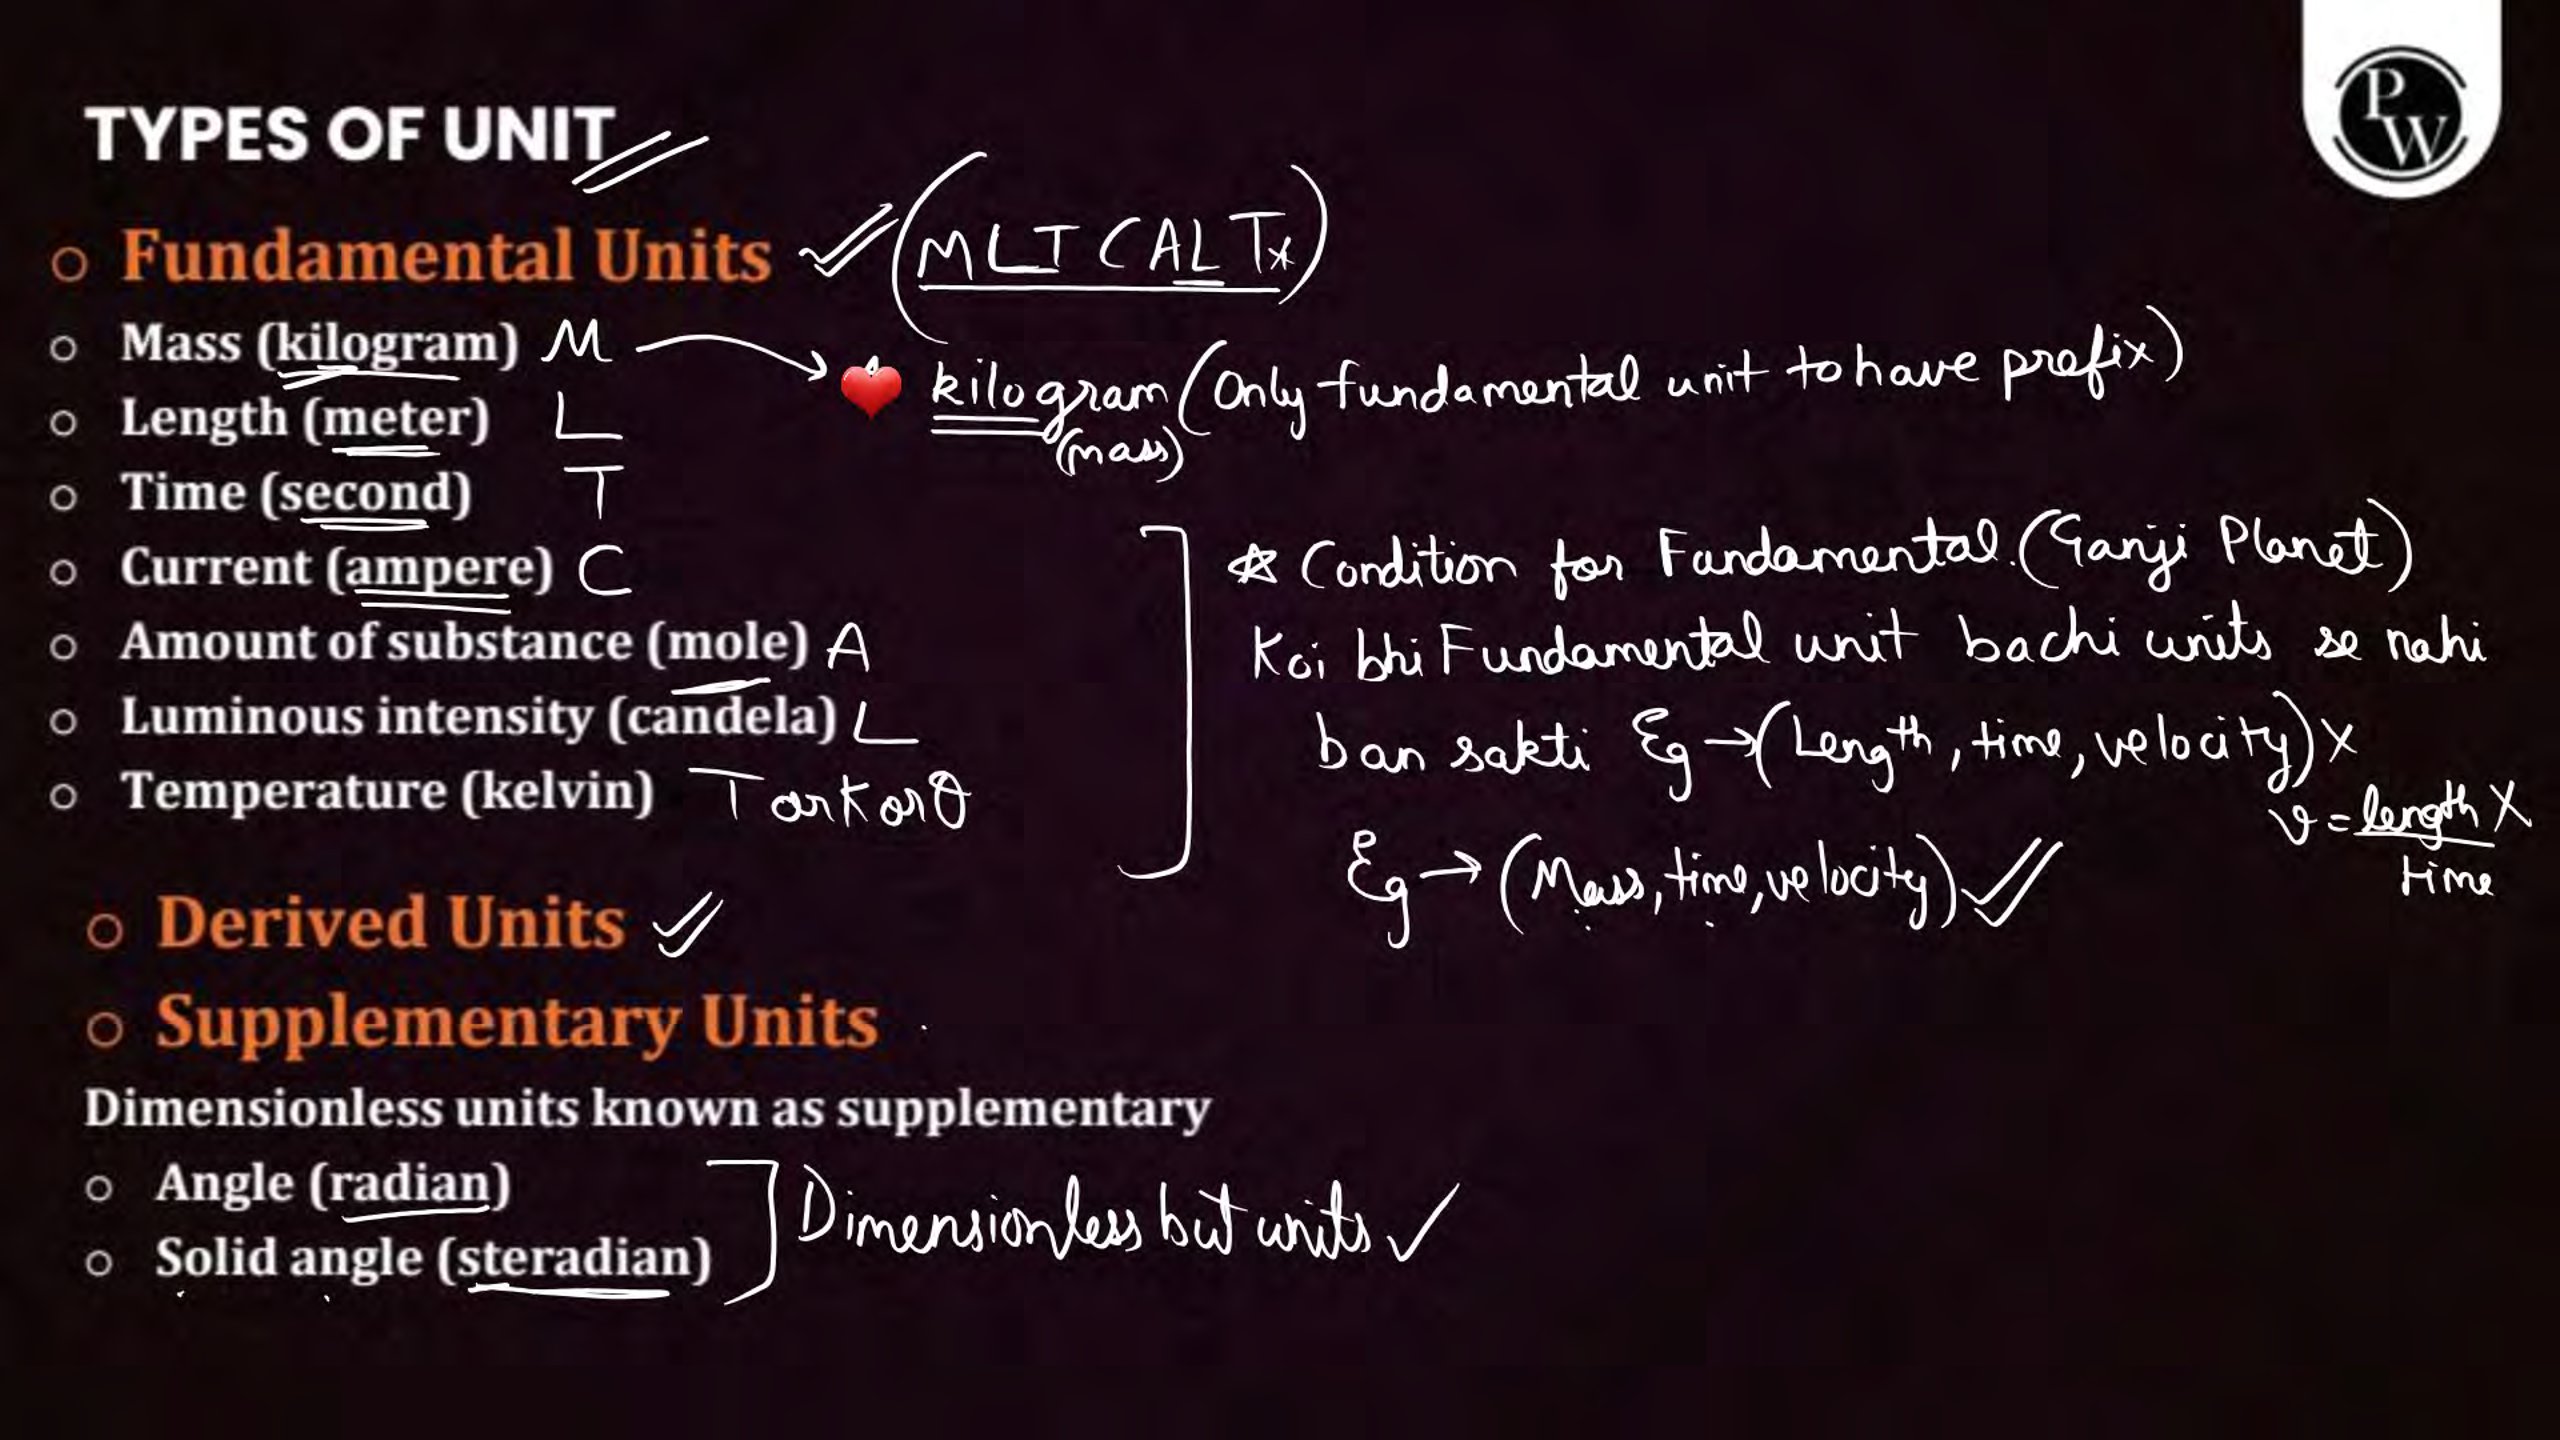 PW
TYPES OF UNIT
Fundamental Units (MLTCALT)
Mass (kilogram) M → kilogram (Only fundamental unit to have prefix)
(mass)
Length (meter) L
Time (second) T
Current (ampere) C
Amount of substance (mole) A
Luminous intensity (candela) L
Temperature (kelvin) T or K or θ
Condition for Fundamental. (Ganji Planet)
Koi bhi Fundamental unit bachi units se nahi
ban sakti Eg → (Length, time, velocity) X
v = length X
time
Eg → (Mass, time, velocity) ✓
Derived Units ✓
Supplementary Units
Dimensionless units known as supplementary
Angle (radian)
Solid angle (steradian)
Dimensionless but units ✓